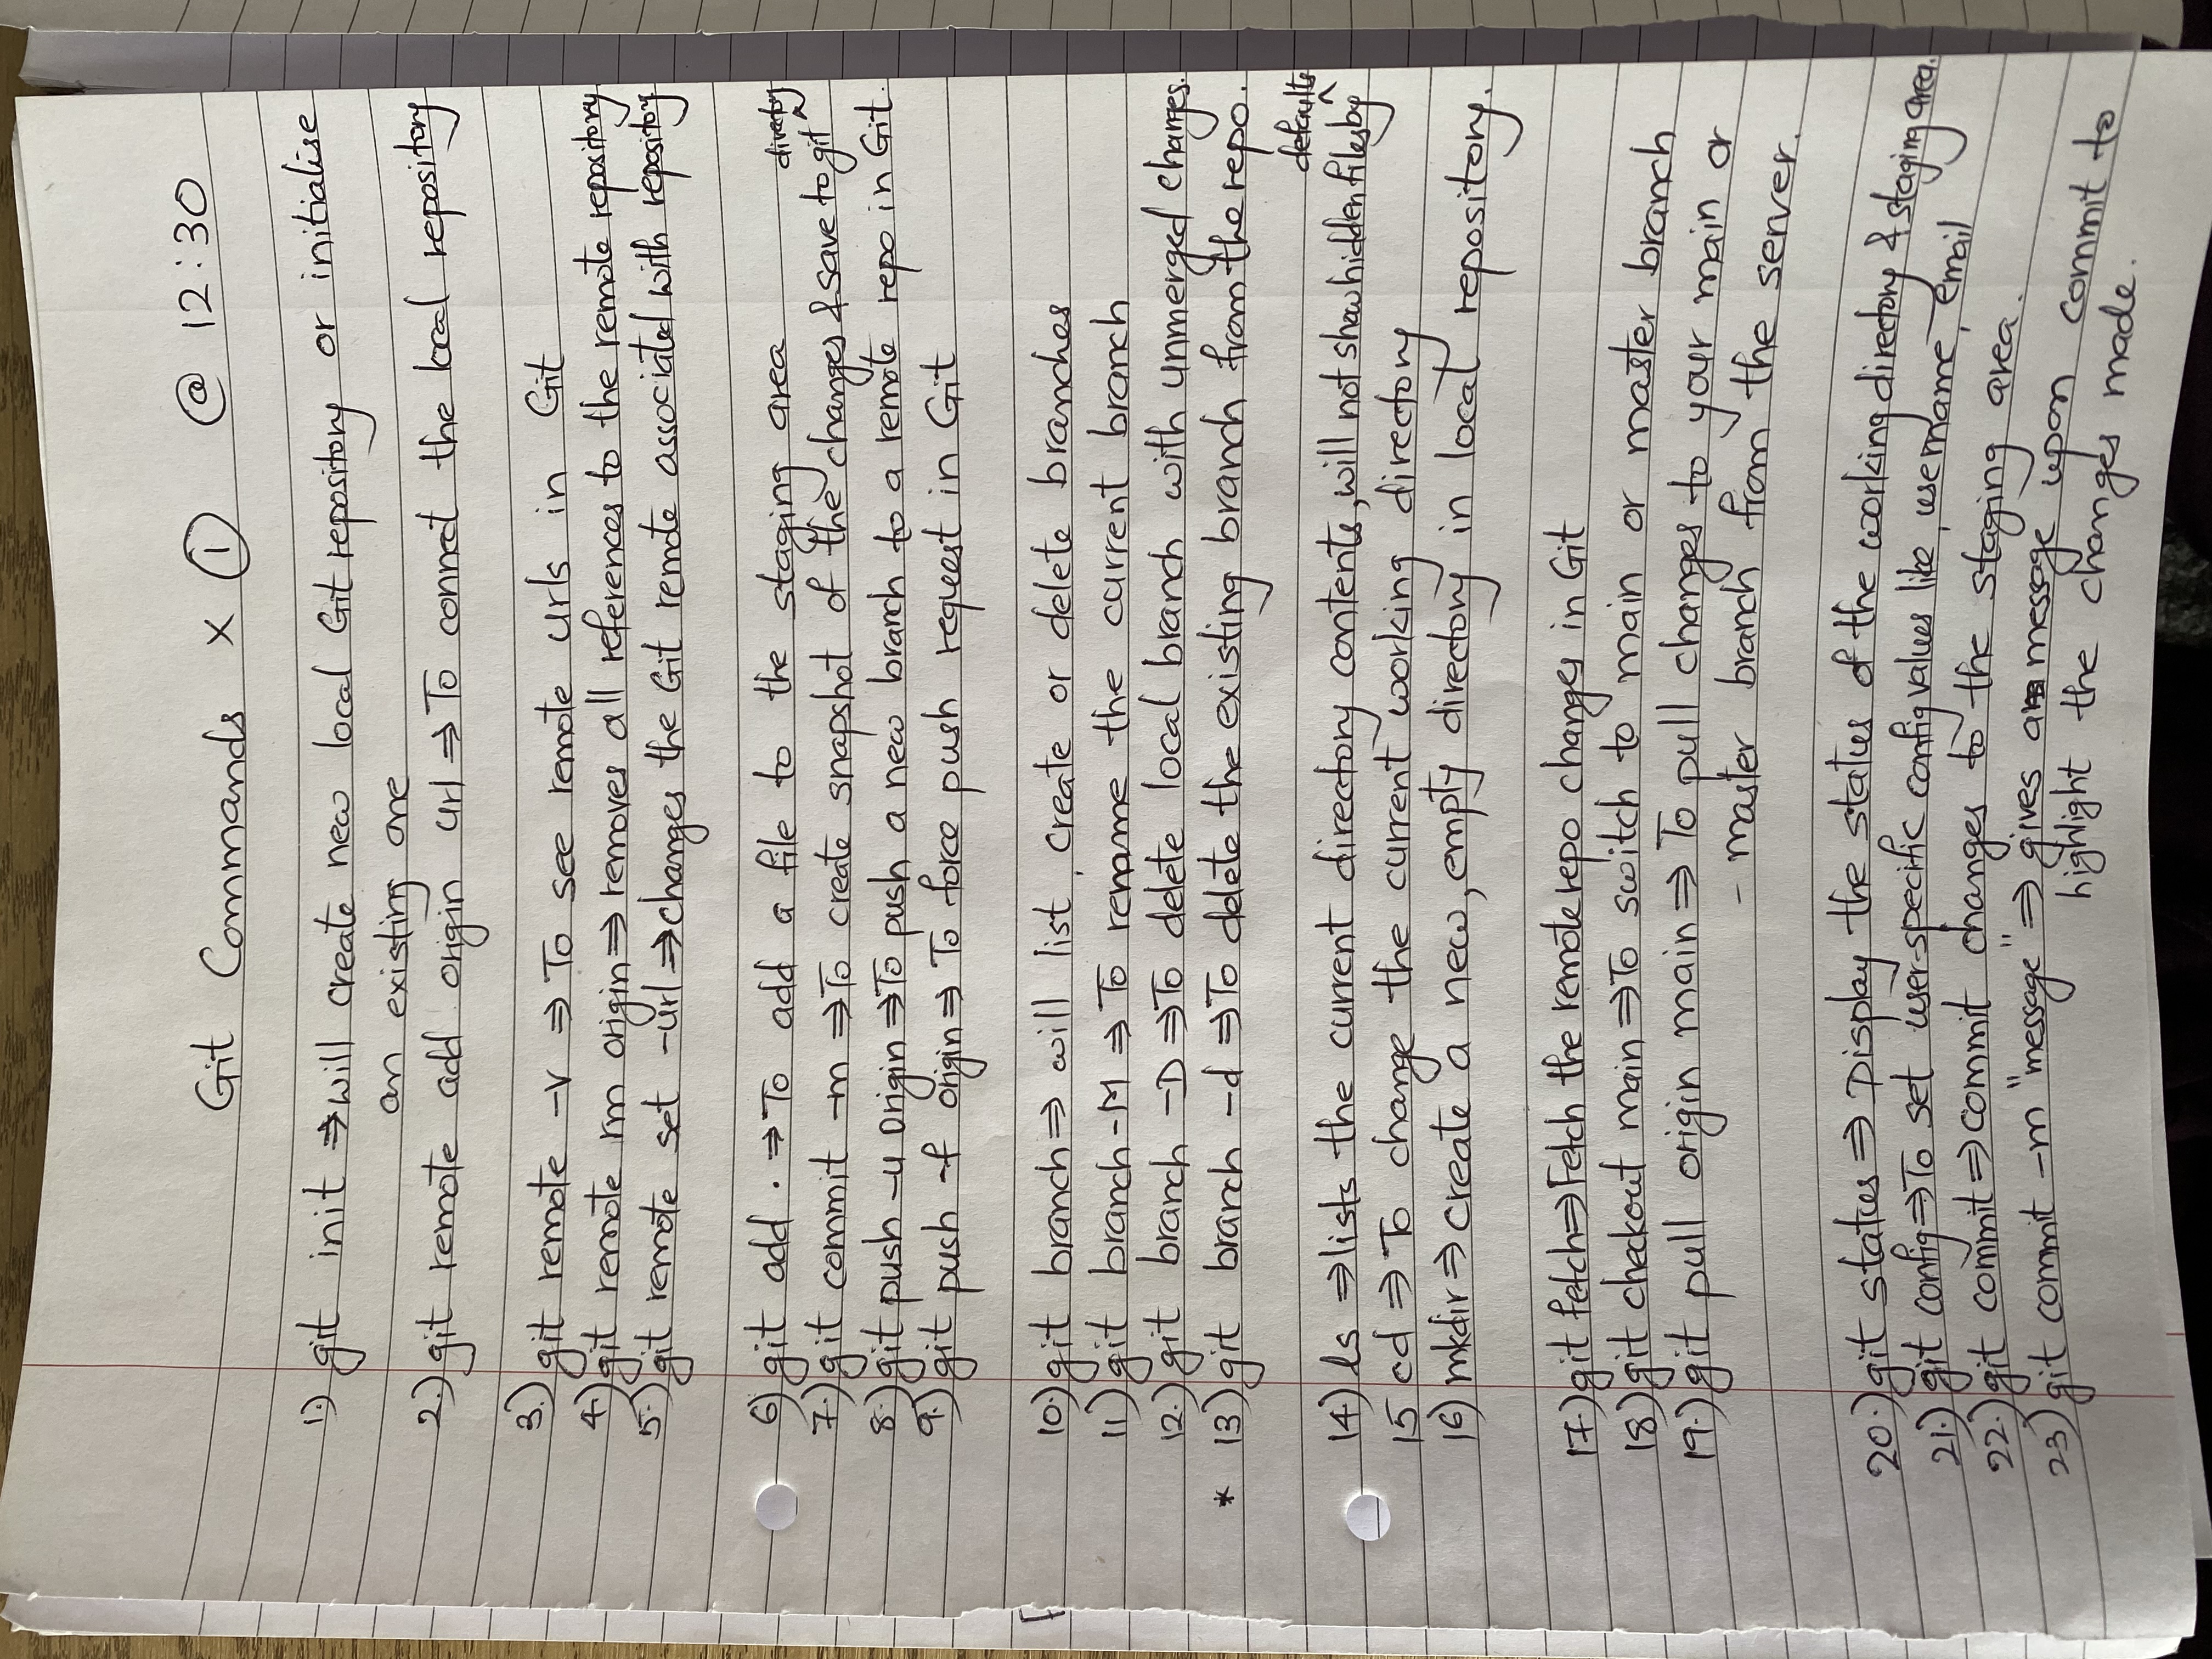 Git Commands x ① @ 12:30
1.) git init ⇒ will create new local Git repository or initialise
an existing one
2.) git remote add origin url ⇒ To connect the local repository
3.) git remote -v ⇒ To see remote urls in Git
4.) git remote rm origin ⇒ removes all references to the remote repository
5.) git remote set -url ⇒ changes the Git remote associated with repository
6) git add . ⇒ To add a file to the staging area
7.) git commit -m ⇒ To create snapshot of the changes & save to git ^ directory
8.) git push -u origin ⇒ To push a new branch to a remote repo in Git.
9.) git push -f origin ⇒ To force push request in Git
10.) git branch ⇒ will list, create or delete branches
11) git branch -M ⇒ To rename the current branch
12.) git branch -D ⇒ To delete local branch with unmerged changes.
* 13) git branch -d ⇒ To delete the existing branch from the repo.
14) ls ⇒ lists the current directory contents, will not show hidden files by ^ defaults
15 cd ⇒ To change the current working directory
16) mkdir ⇒ create a new, empty directory in local repository.
17.) git fetch ⇒ Fetch the remote repo changes in Git
18) git checkout main ⇒ To switch to main or master branch
19.) git pull origin main ⇒ To pull changes to your main or
- master branch from the server.
20.) git status ⇒ Display the status of the working directory & staging area.
21.) git config ⇒ To set user-specific config values like, username, email
22.) git commit ⇒ commit changes to the staging area.
23) git commit -m "message" ⇒ gives a message upon commit to
highlight the changes made.